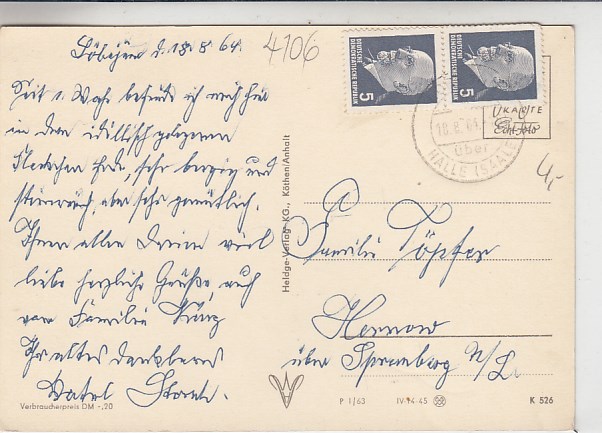 Löbejün d. 18.8.64.
4106
Seit 1 Woche befinde ich mich hier
in dem idyllisch gelegenen
Fleckchen Erde, sehr bergig und
steinreich, aber sehr gemütlich.
Ihnen allen Dreien viel
liebe herzliche Grüße, auch
von Familie
Ihr altes dankbares
Verbraucherpreis DM -,20
Heldge-Verlag KG., Köthen/Anhalt
DEUTSCHE DEMOKRATISCHE REPUBLIK 5
DEUTSCHE DEMOKRATISCHE REPUBLIK 5
18.8.64
über
HALLE (SAALE)
KARTE
Echt Foto
4,-
Familie Töpfer
über Spremberg N/L.
P 1/63 IV 14 45 K 526